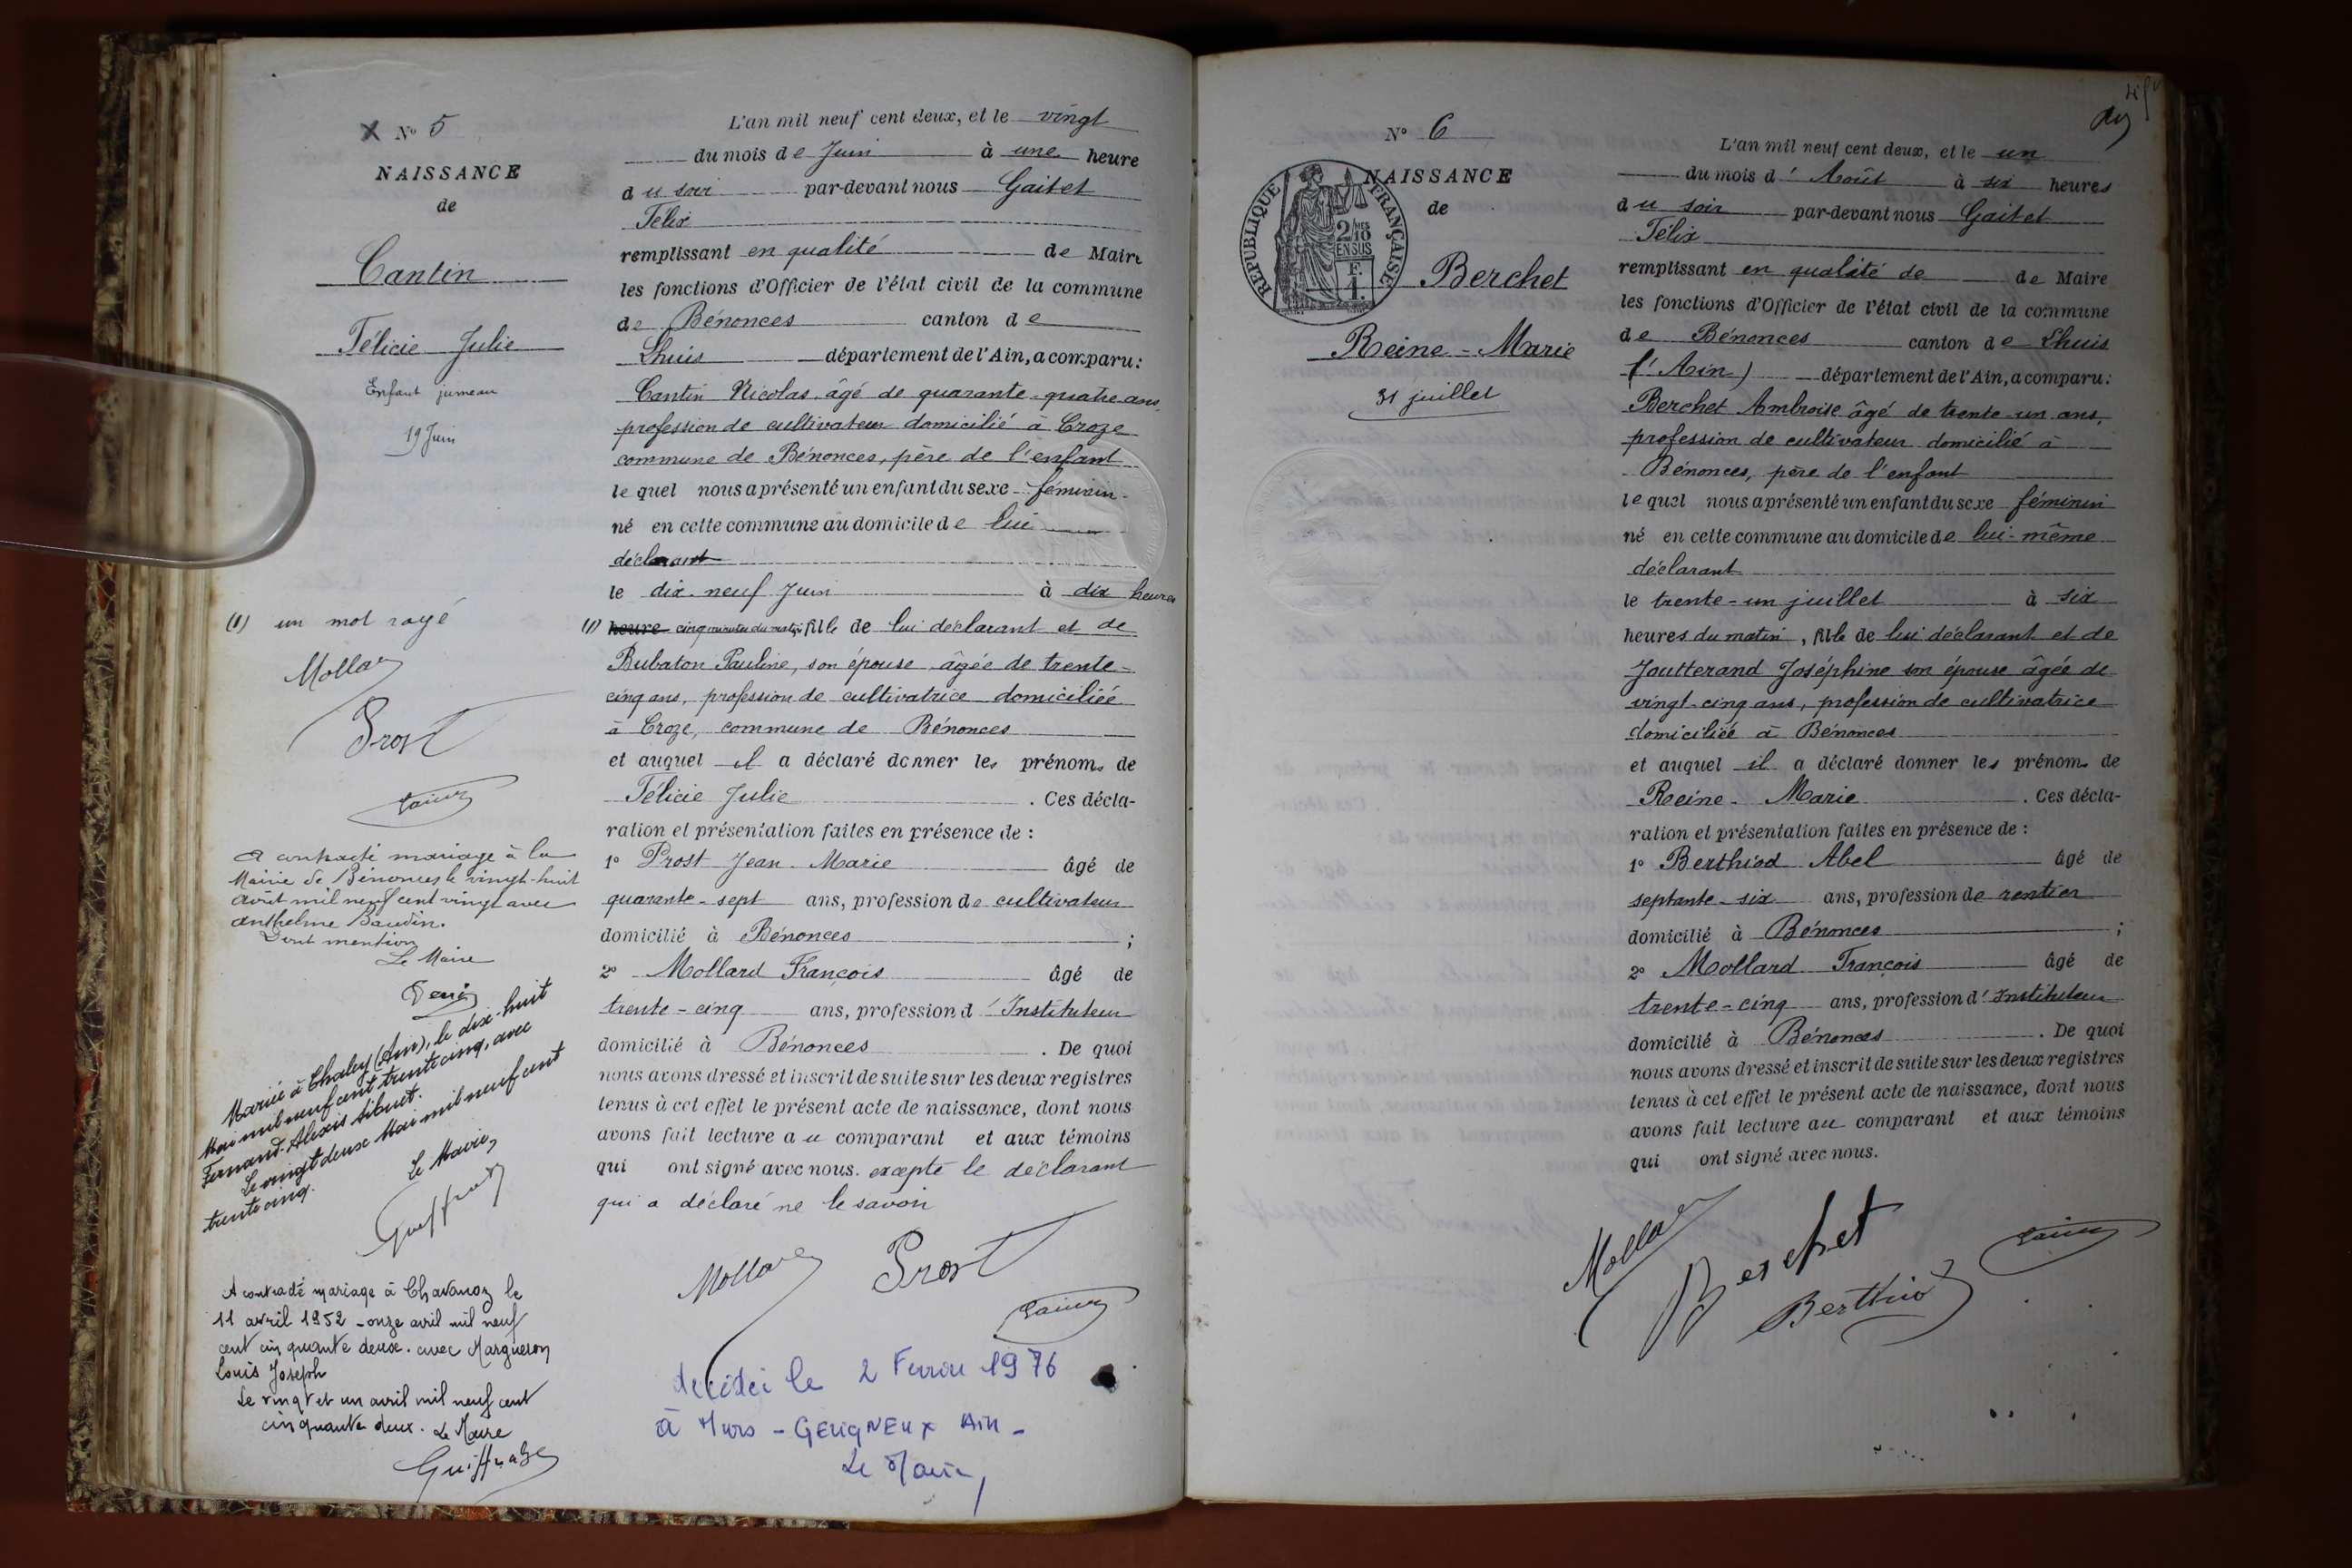 X N° 5
NAISSANCE
de
Cantin
Félicie Julie
Enfant jumeau
19 Juin
(1) un mot rayé
Mollard
Prost
Gaitet
A contracté mariage à la
Mairie de Bénonces le vingt-huit
août mil neuf cent vingt avec
Anthelme Baudin.
Dont mention
Le Maire
Mariée à Chaley (Ain), le dix-huit
Mai mil neuf cent trente cinq, avec
Fernand-Alexis Sibuet.
Le vingt deux Mai mil neuf cent
trente cinq.
Le Maire,
A contracté mariage à Chavanoz le
11 avril 1952 - onze avril mil neuf
cent cinquante deux. avec Margueron
Louis Joseph
Le vingt et un avril mil neuf cent
cinquante deux. Le Maire
L'an mil neuf cent deux, et le vingt
du mois de Juin à une heure
du soir par-devant nous Gaitet
Félix
remplissant en qualité de Maire
les fonctions d'Officier de l'état civil de la commune
de Bénonces canton de
Lhuis département de l'Ain, a comparu:
Cantin Nicolas âgé de quarante-quatre ans,
profession de cultivateur domicilié à Croze
commune de Bénonces, père de l'enfant
lequel nous a présenté un enfant du sexe féminin
né en cette commune au domicile de lui
déclarant
le dix-neuf Juin à dix heures
(1) heure cinq minutes du matin, fille de lui déclarant et de
Bubaton Pauline, son épouse âgée de trente-
cinq ans, profession de cultivatrice domiciliée
à Croze, commune de Bénonces
et auquel il a déclaré donner les prénoms de
Félicie Julie. Ces décla-
ration et présentation faites en présence de :
1° Prost Jean Marie âgé de
quarante-sept ans, profession de cultivateur
domicilié à Bénonces ;
2° Mollard François âgé de
trente-cinq ans, profession d'Instituteur
domicilié à Bénonces. De quoi
nous avons dressé et inscrit de suite sur les deux registres
tenus à cet effet le présent acte de naissance, dont nous
avons fait lecture au comparant et aux témoins
qui ont signé avec nous. excepté le déclarant
qui a déclaré ne le savoir
Mollard Prost Gaitet
décédée le 2 Février 1976
à Murs - GELIGNEUX Ain -
Le Maire,
N° 6
NAISSANCE
de
REPUBLIQUE FRANÇAISE
2/10 MES
EN SUS
F.
1.
Berchet
Reine-Marie
31 juillet
L'an mil neuf cent deux, et le un
du mois d'Août à six heures
du soir par-devant nous Gaitet
Félix
remplissant en qualité de de Maire
les fonctions d'Officier de l'état civil de la commune
de Bénonces canton de Lhuis
(l'Ain) département de l'Ain, a comparu:
Berchet Ambroise âgé de trente-un ans,
profession de cultivateur domicilié à
Bénonces, père de l'enfant
lequel nous a présenté un enfant du sexe féminin
né en cette commune au domicile de lui-même
déclarant
le trente-un juillet à six
heures du matin, fille de lui déclarant et de
Joutterand Joséphine son épouse âgée de
vingt-cinq ans, profession de cultivatrice
domiciliée à Bénonces
et auquel il a déclaré donner les prénoms de
Reine-Marie. Ces décla-
ration et présentation faites en présence de :
1° Berthiod Abel âgé de
septante-six ans, profession de rentier
domicilié à Bénonces ;
2° Mollard François âgé de
trente-cinq ans, profession d'Instituteur
domicilié à Bénonces. De quoi
nous avons dressé et inscrit de suite sur les deux registres
tenus à cet effet le présent acte de naissance, dont nous
avons fait lecture au comparant et aux témoins
qui ont signé avec nous.
Mollard Berchet Gaitet
Berthiod